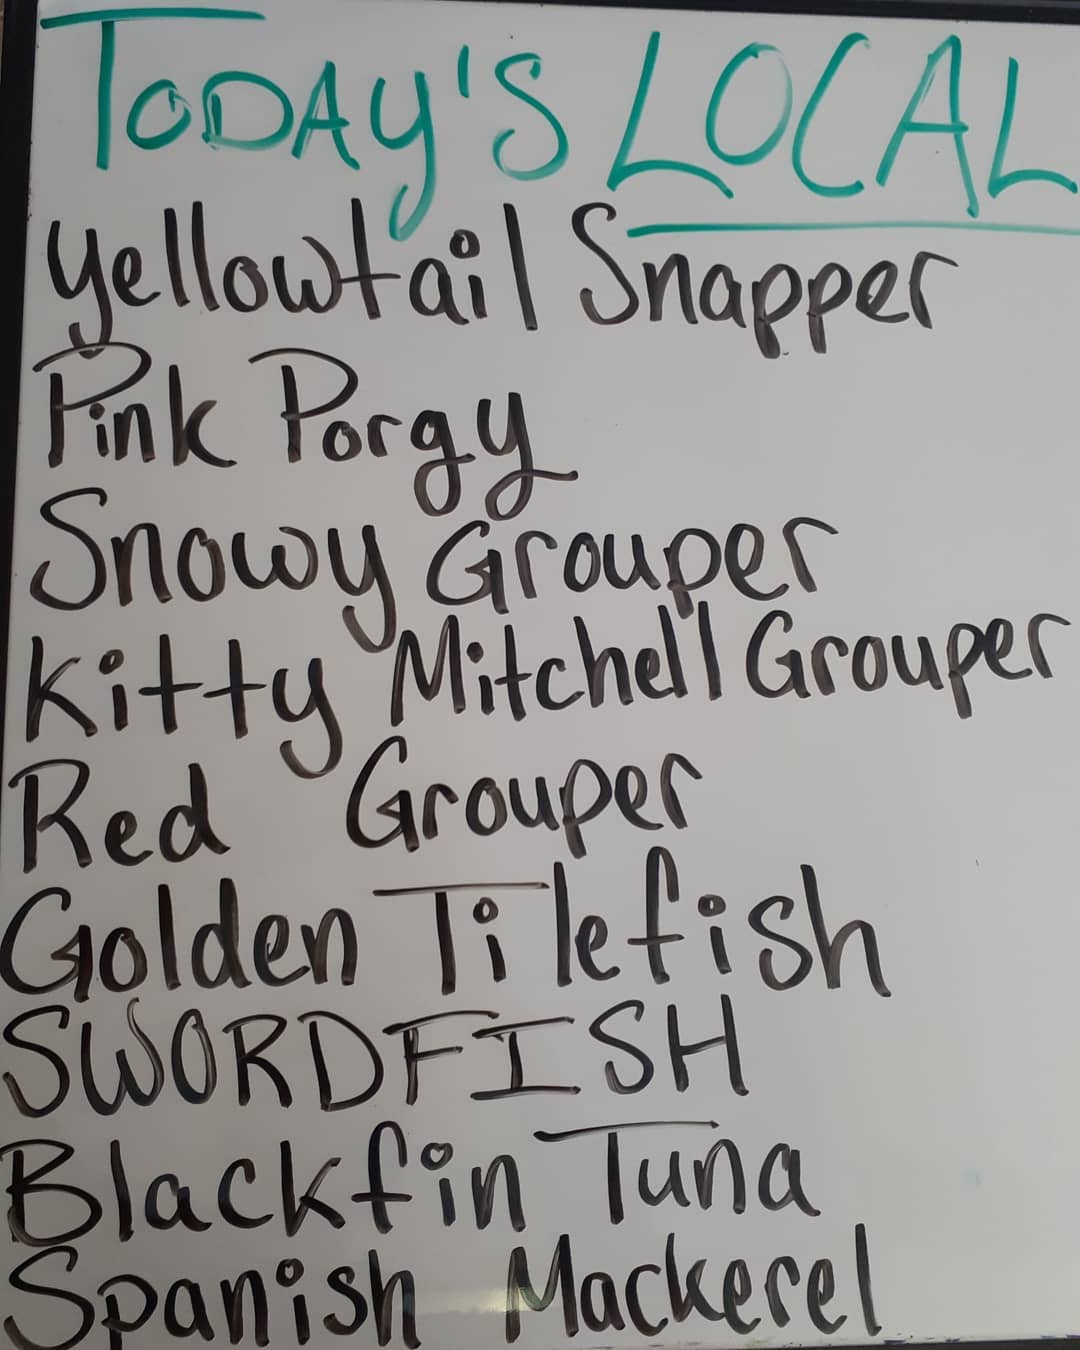 TODAY'S LOCAL
yellowtail Snapper
Pink Porgy
Snowy Grouper
Kitty Mitchell Grouper
Red Grouper
Golden Tilefish
SWORDFISH
Blackfin Tuna
Spanish Mackerel